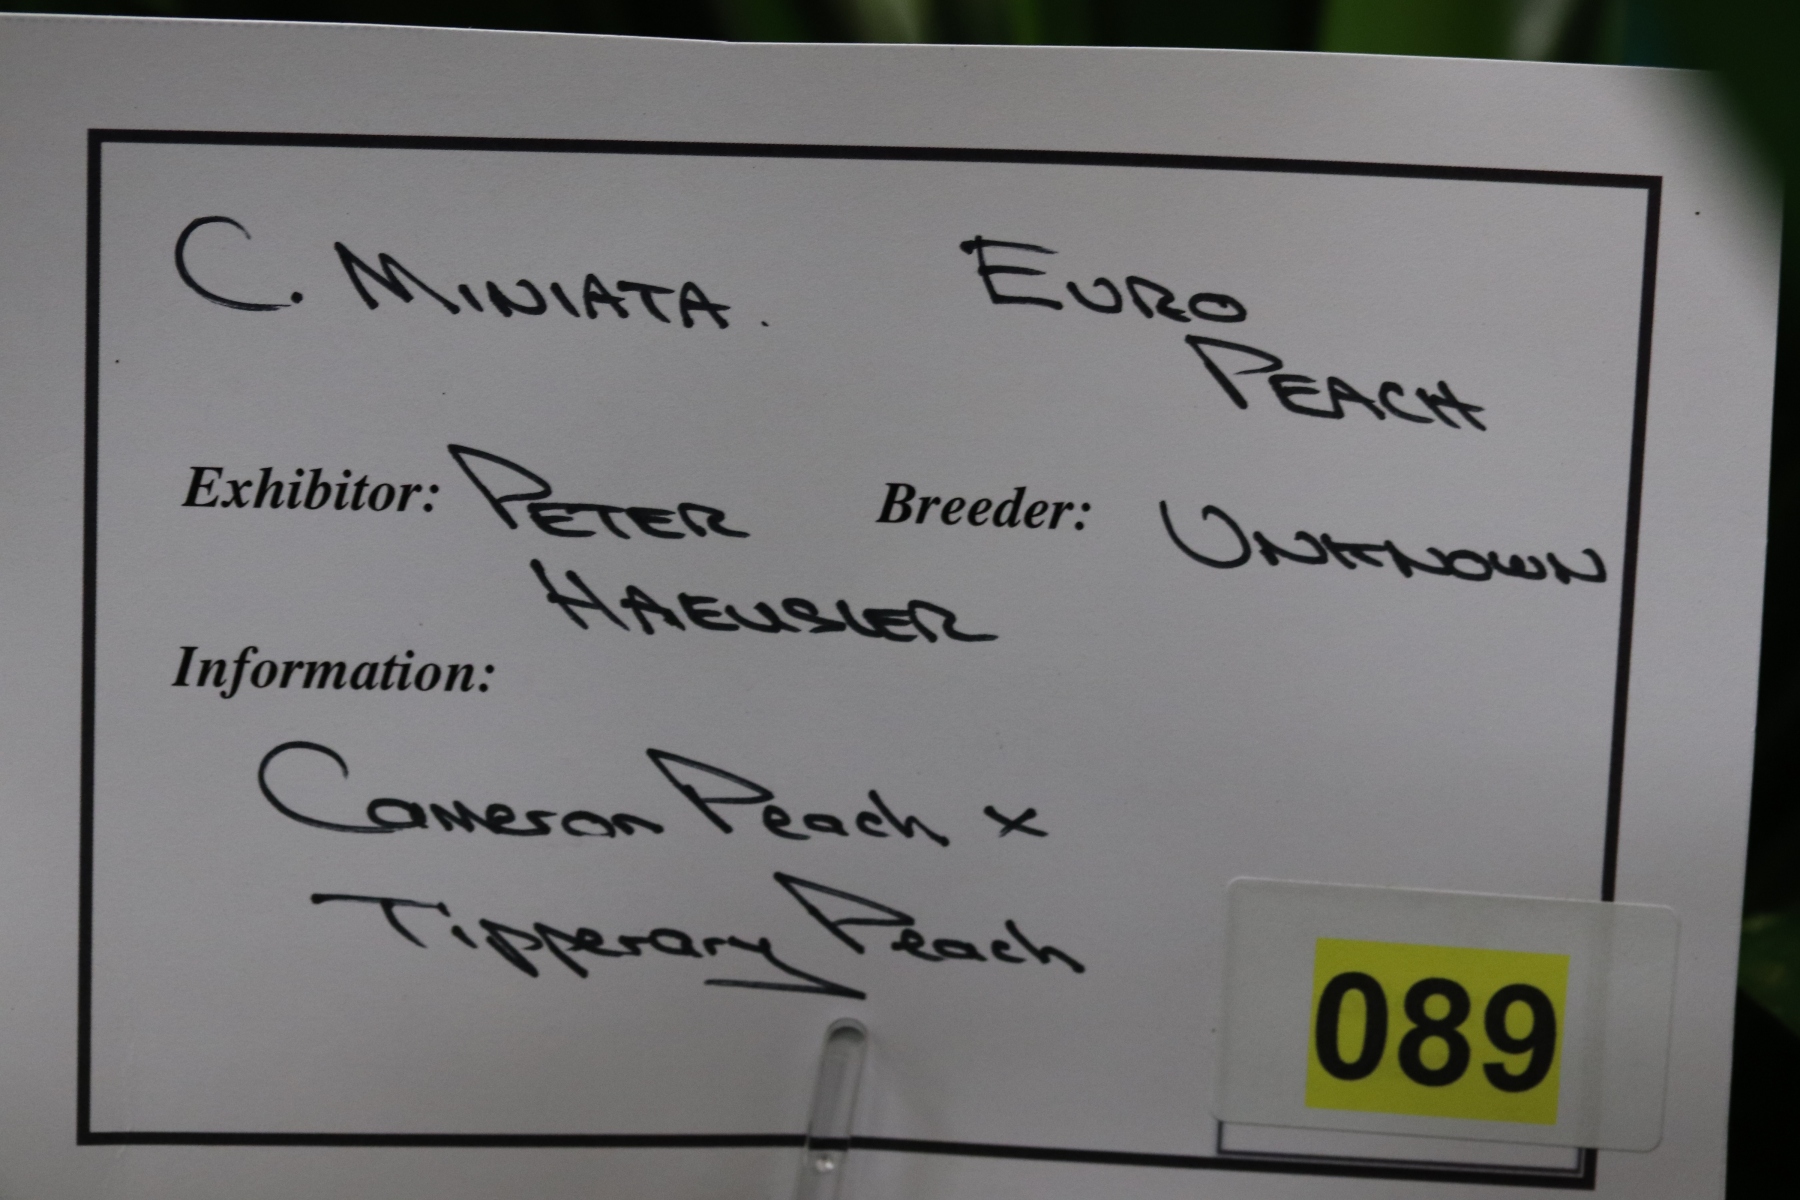 C. MINIATA. EURO
PEACH
Exhibitor: PETER Breeder: UNKNOWN
HAEUSLER
Information:
Cameron Peach x
Tipperary Peach
089